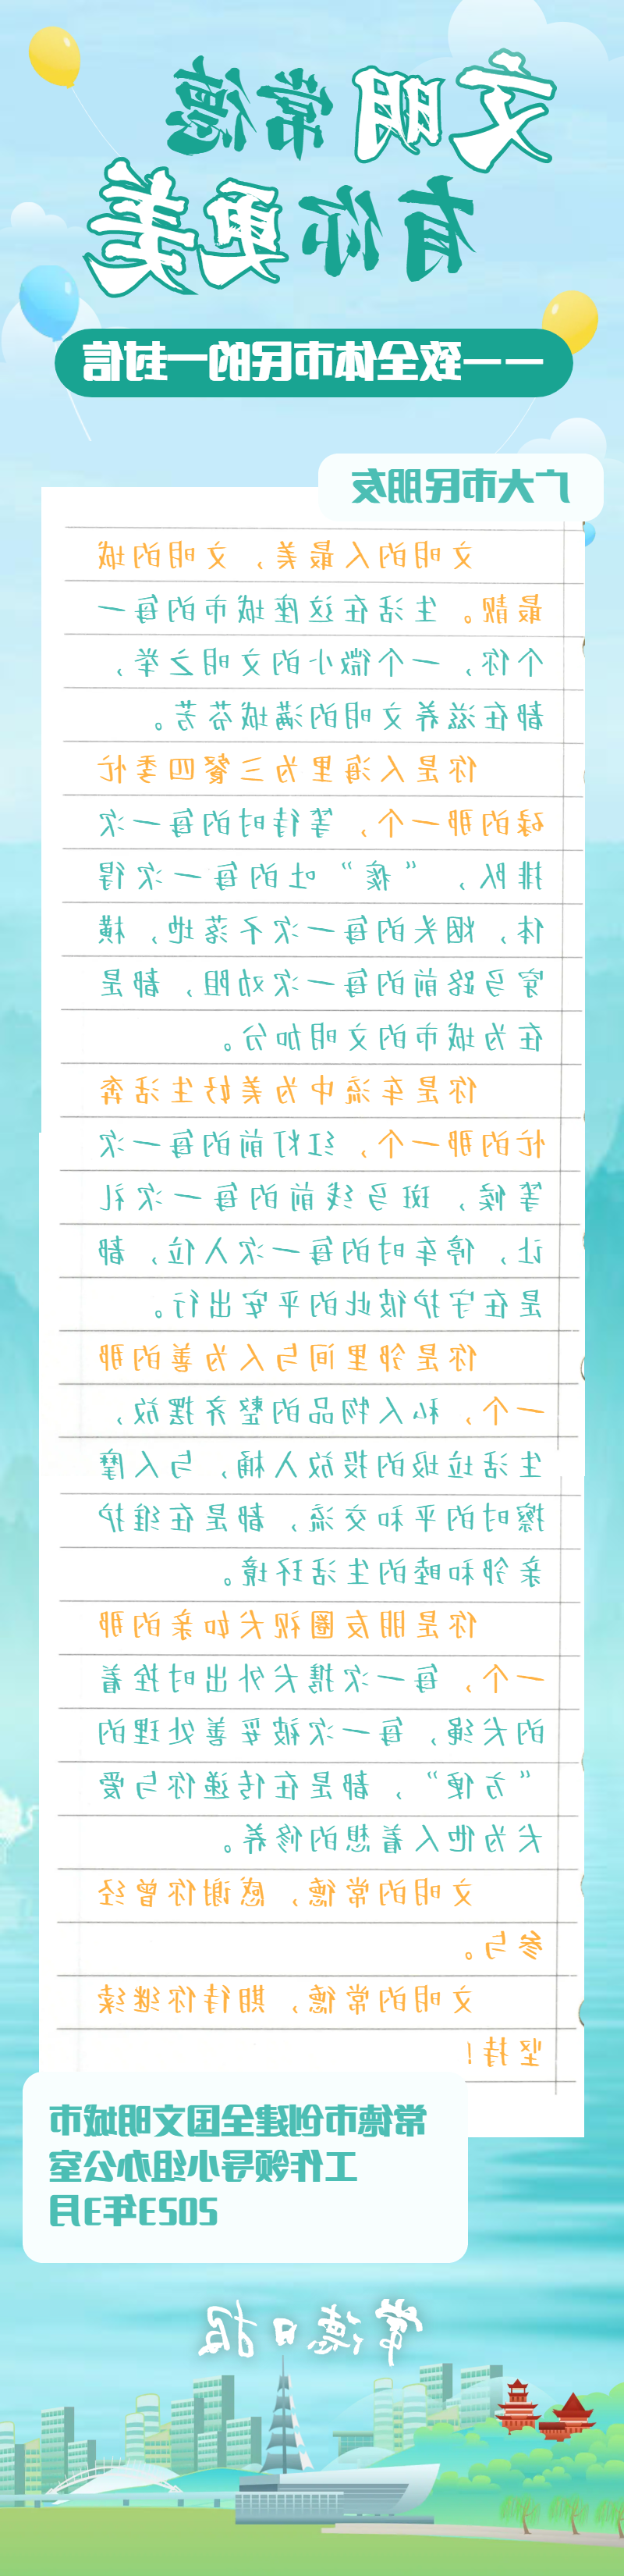 文明常德
有你更美
——致全体市民的一封信
广大市民朋友
文明的人最美，文明的城
最靓。生活在这座城市的每一
个你，一个微小的文明之举，
都在滋养文明的满城芬芳。
你是人海里为三餐四季忙
碌的那一个，等待时的每一次
排队，“痰”吐的每一次得
体，烟头的每一次不落地，横
穿马路前的每一次劝阻，都是
在为城市的文明加分。
你是车流中为美好生活奔
忙的那一个，红灯前的每一次
等候，斑马线前的每一次礼
让，停车时的每一次入位，都
是在守护彼此的平安出行。
你是邻里间与人为善的那
一个，私人物品的整齐摆放，
生活垃圾的投放入桶，与人摩
擦时的平和交流，都是在维护
亲邻和睦的生活环境。
你是朋友圈视犬如亲的那
一个，每一次携犬外出时拴着
的犬绳，每一次被妥善处理的
“方便”，都是在传递你与爱
犬为他人着想的修养。
文明的常德，感谢你曾经
参与。
文明的常德，期待你继续
坚持！
常德市创建全国文明城市
工作领导小组办公室
2023年3月
常德日报